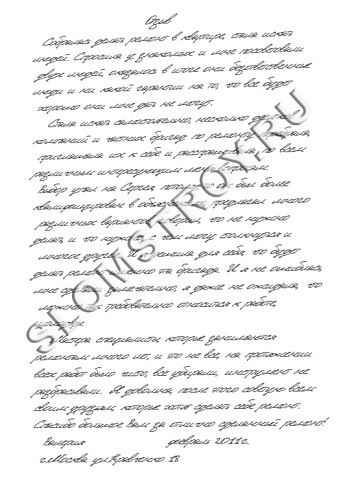 Отзыв
Собралась делать ремонт в квартире, стала искать
людей. Спросила у знакомых и мне посоветовали
двух людей, оказалось в итоге они безответственные
люди и ни какой гарантии на то, что все будет
хорошо они мне дать не могут.
Стала искать самостоятельно, несколько
компаний и частных бригад по ремонту
приглашала их к себе и расспрашивала по всем
различным интересующим меня вопросам.
Выбор упал на Сергея потому что он был более
квалифицирован в общении, предлагал много
различных вариантов, говорил, что не нужно
делать и что нужно, с чем могу столкнутся и
многое другое. И решила для себя, что будет
делать ремонт именно эта бригада. И я не ошиблась,
мне сделали замечательно, я даже не ожидала, что
можно так требовательно относится к работе,
Мастера специалисты, которые занимаются
ремонтом много лет, и это не все, на протяжении
всех работ было чисто, все убирали, инструмент не
разбрасывали. Я довольна, после этого советую всем
своим друзьям, которые хотят сделать себе ремонт.
Спасибо большое Вам за отлично сделанный ремонт!
Валерия февраль 2011г.
г.Москва ул.Кравченко 18
SLOMSTROY.RU